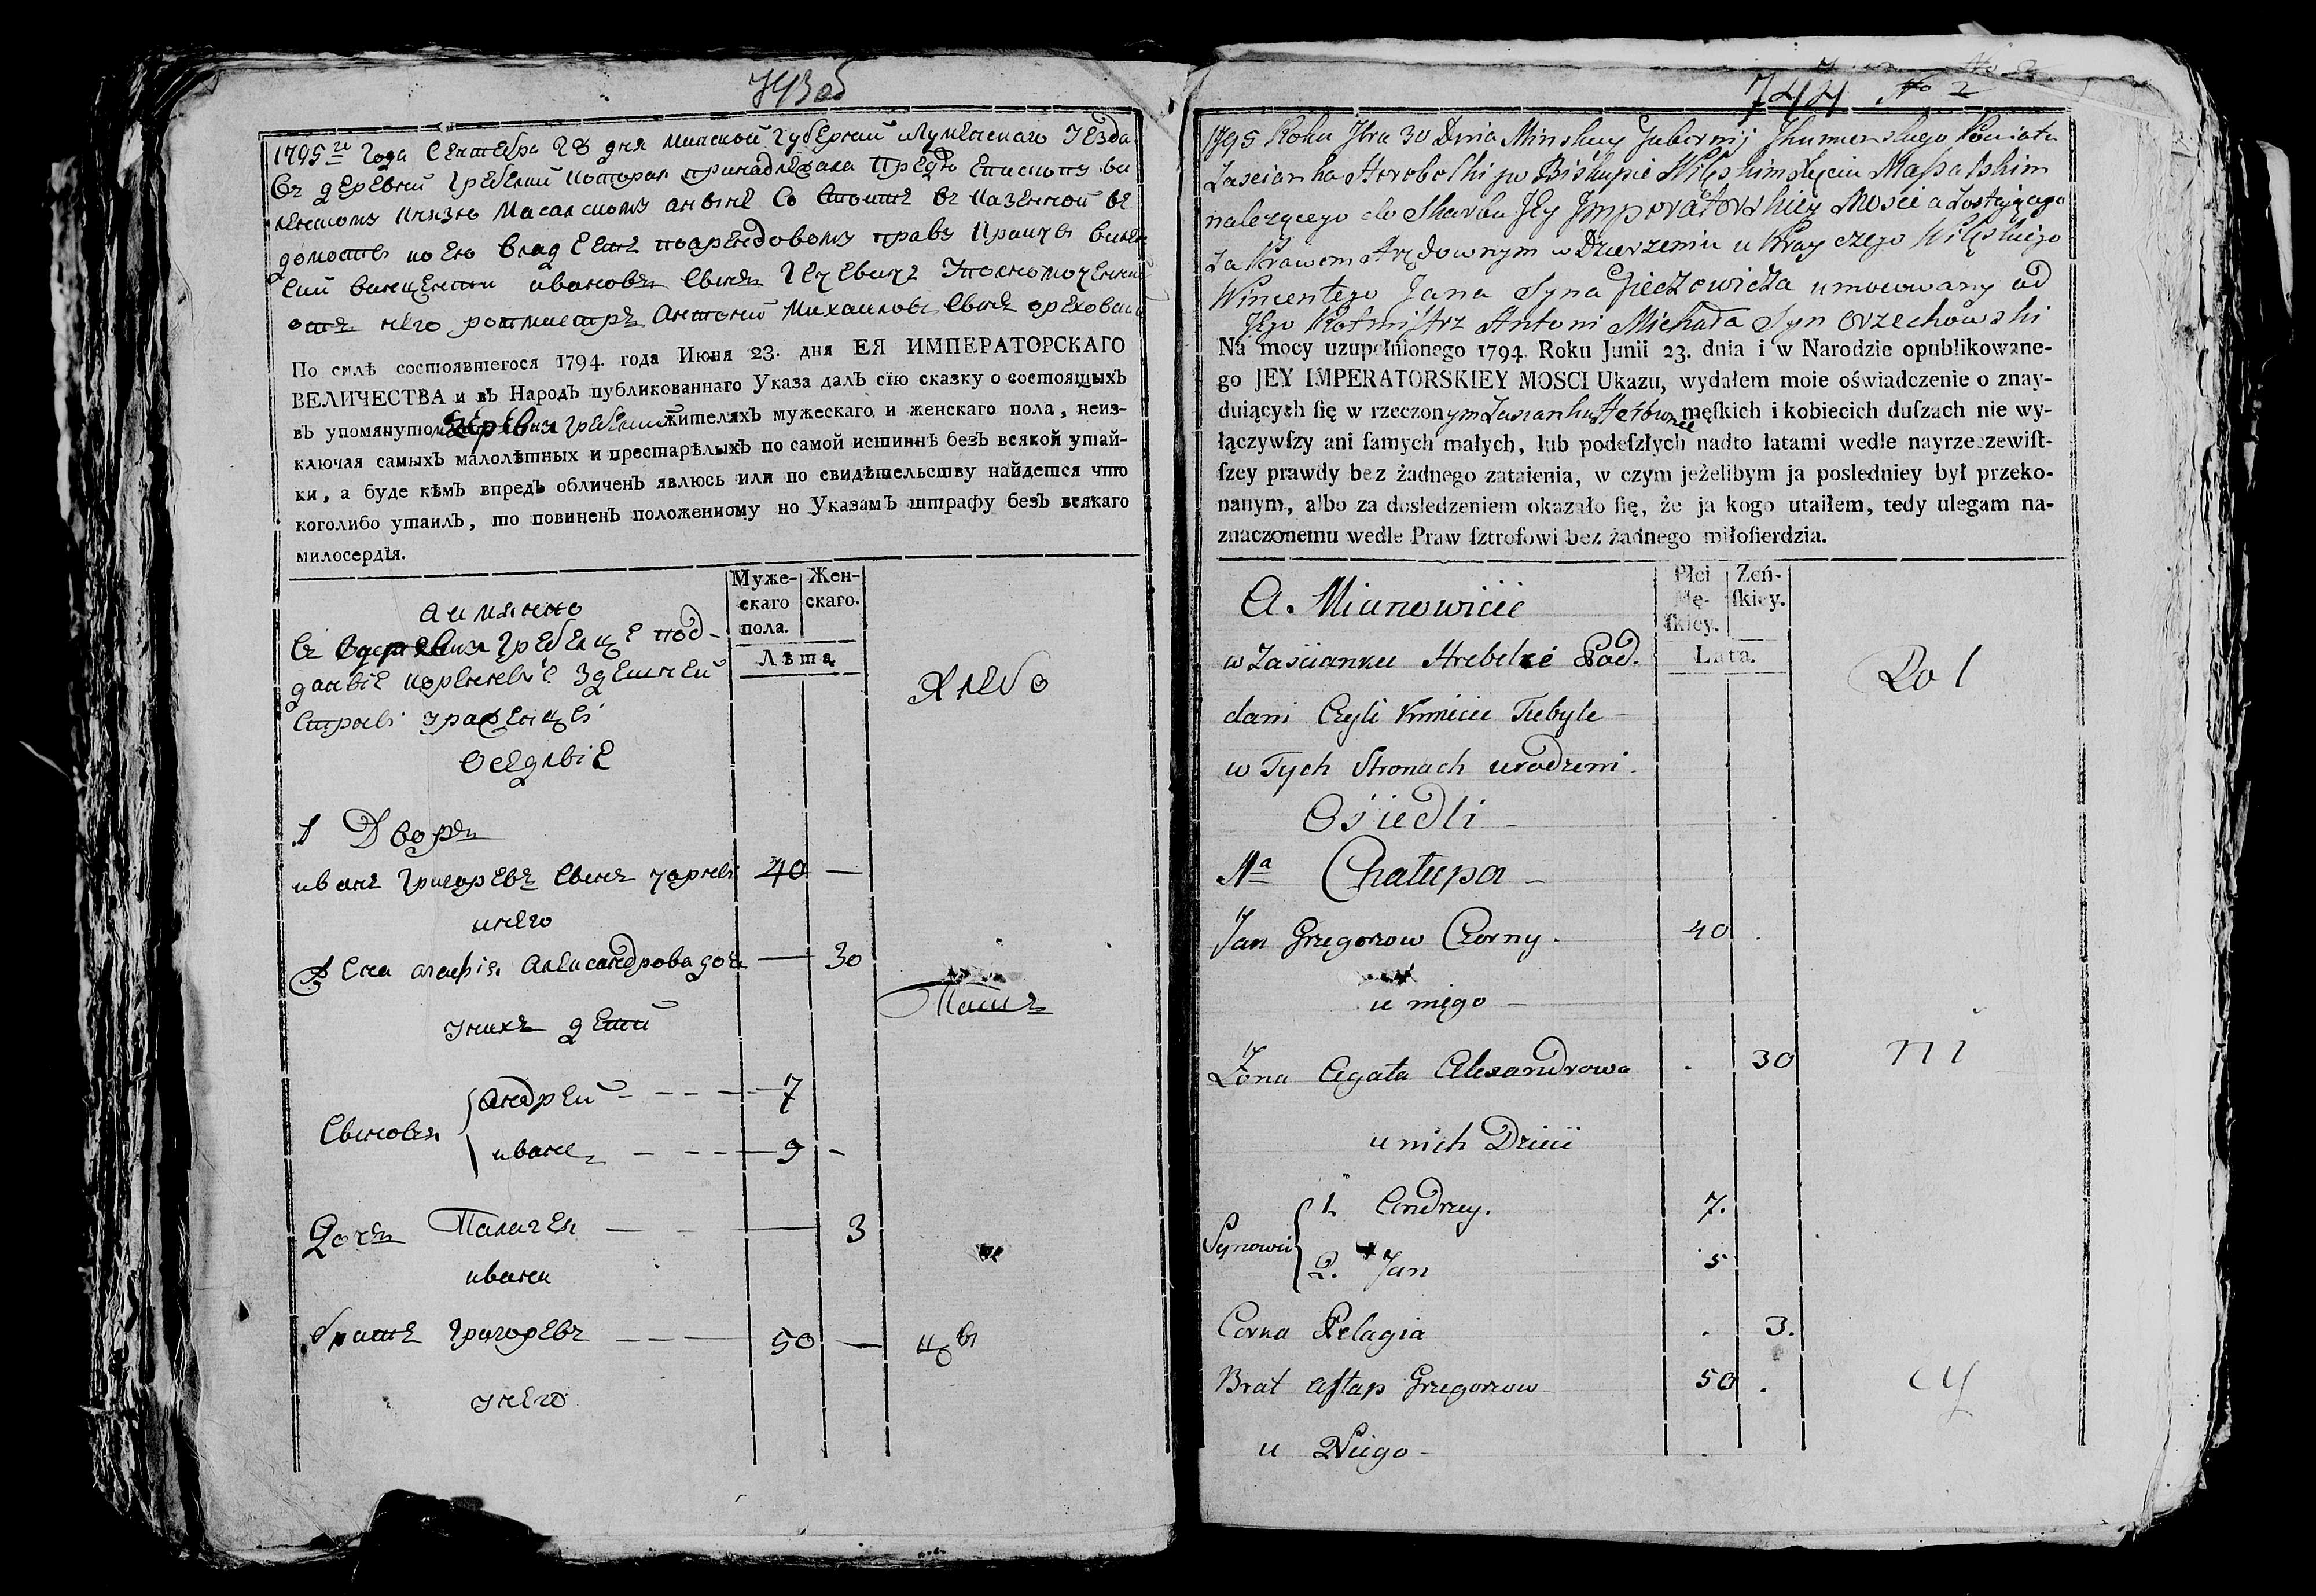 743 об
1795 го года Сентебра 28 дня минской губернии игуменскаго уезда
въ деревни гребелки которая принадлежала предъ епископу ви
ленскому князю Масалскому аныне состоитъ въ казенной ве
домости коею владеетъ поарендовому праву крайчы вилен
ский винцентий ивановъ сынъ гецевичъ уполномоченный
отъ него ротмистръ антоний михаиловъ сынъ ореховский
По силѣ состоявшегося 1794. года Июня 23. дня ЕЯ ИМПЕРАТОРСКАГО
ВЕЛИЧЕСТВА и въ Народъ публикованнаго Указа далъ сїю сказку о состоящыхъ
въ упомянутой деревни гребелки жителяхъ мужескаго и женскаго пола, неиз-
ключая самыхъ малолѣтныхъ и престарѣлыхъ по самой истиннѣ безъ всякой утай-
ки, а буде кѣмъ впредь обличенъ явлюсь или по свидѣтельству найдется что
коголибо утаилъ, то повиненъ положенному по Указамъ штрафу безъ всякаго
милосердїя.
Муже-
скаго
пола.
Жен-
скаго.
Лѣта
а имянно
въ деревни гребелце под-
даныіе коренныіе здешней
строны урож енцеі
Оседлыіе
хлебо
1 Дворъ
иванъ григоревъ сынъ чорны 40 —
унего
жена агафія александрова доч — 30
Паш
унихъ дети
Сыновья
андрей 7
иванъ 9 -
Дочъ Палагея — 3
ивана
братъ григоревъ 50 — цы
унего
744 No 2
1795 Roku 7bra 30 Dnia Minskiey Gubernij Ihumenskiego Powiatu
Zascianka Hrebelki po Biskupie Wileńskim Xięciu Massalskim
należącego do Skarbu Jey Imperatorskiey Mosci a zostającego
za Prawem Arędownym w Dzierzeniu u Krayczego Wileńskiego
Wincentego Jana Syna Gieczewicza umocowany od
Jego Rotmistrz Antoni Michała Syn Orzechowski
Na mocy uzupełnionego 1794. Roku Junii 23. dnia i w Narodzie opublikowane-
go JEY IMPERATORSKIEY MOSCI Ukazu, wydałem moie oświadczenie o znay-
duiących ſię w rzeczonym Zascianku męſkich i kobiecich duſzach nie wy-
łączywſzy ani ſamych małych, lub podeſzłych nadto latami wedle nayrzeczewiſt-
ſzey prawdy bez żadnego zataienia, w czym jeżelibym ja posledniey był przeko-
nanym, albo za dosledzeniem okazało ſię, że ja kogo utaiłem, tedy ulegam na-
znaczonemu wedle Praw ſztrofowi bez żadnego miłoſierdzia.
Płci
Mę-
ſkiey.
Zeń-
ſkiey.
Lata.
A. Mianowicie
w Zascianku Hrebelce Pod.
dani Czyli Kmiecie Tebyle
w Tych Stronach urodzeni.
Rol
Osiedli
1a Chałupa
Jan Grzegorzow Czorny. 40 .
u niego
Żona Agata Alexandrowa . 30
ni
u nich Dzieci
Synowie
1. Andrzey. 7.
2. Jan 5
Corka Pelagia . 3.
Brat Astap Grzegorzow 50 .
cy
u Niego